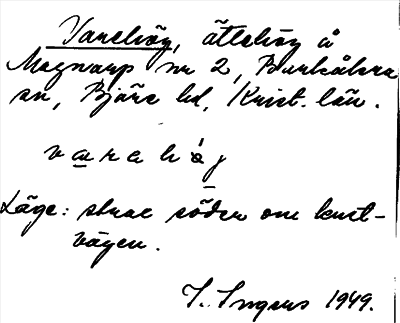 Varehög, ättehög å
Magnarp nr 2, Barkåkra
sn, Bjäre hd, Krist. län.
varahög
Läge: strax söder om kust-
vägen.
I. Ingers 1949.